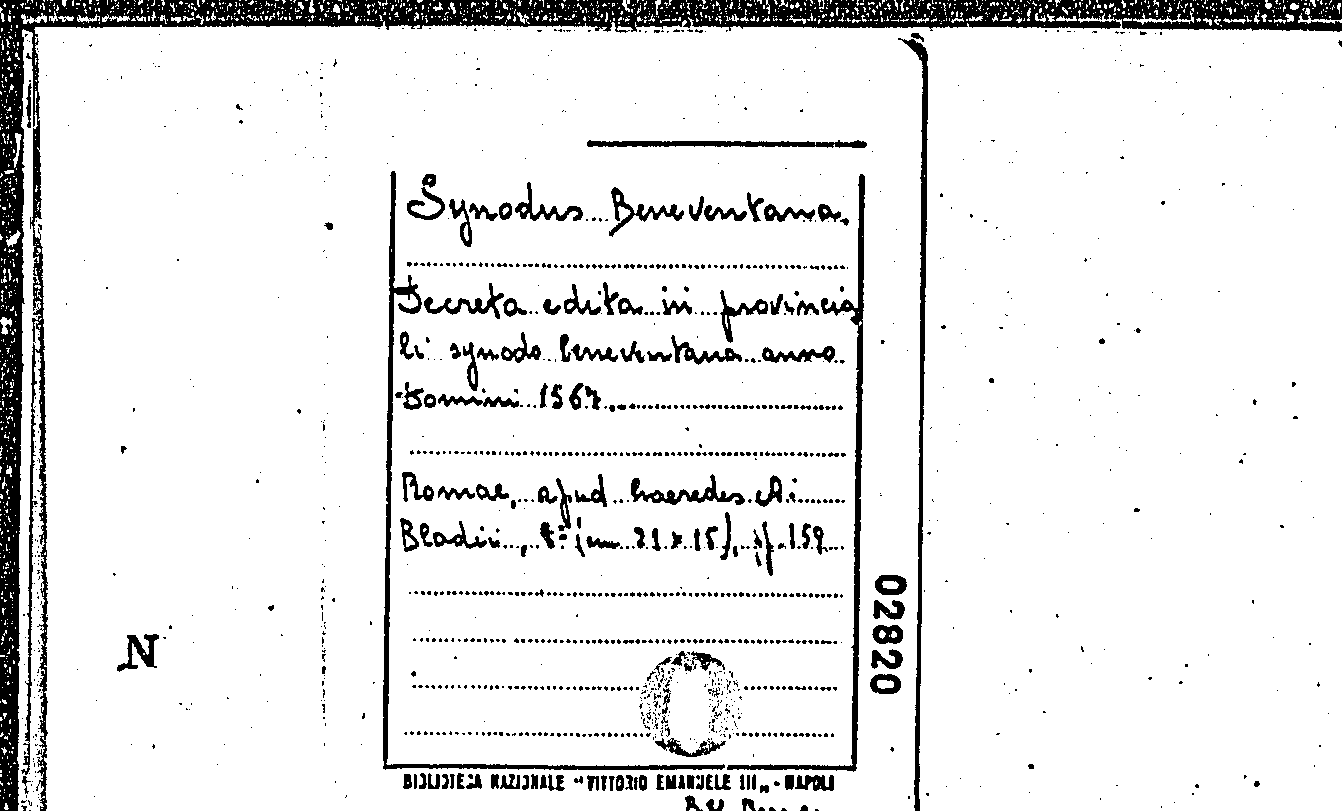 Synodus Beneventana.
Decreta edita in provincia
li synodo beneventana anno
Domini 1567.
Romae, apud haeredes A.
Bladii, 8° (cm 21 x 15), pp. 159
02820
N
BIBLIOTECA NAZIONALE "VITTORIO EMANUELE III„ - NAPOLI